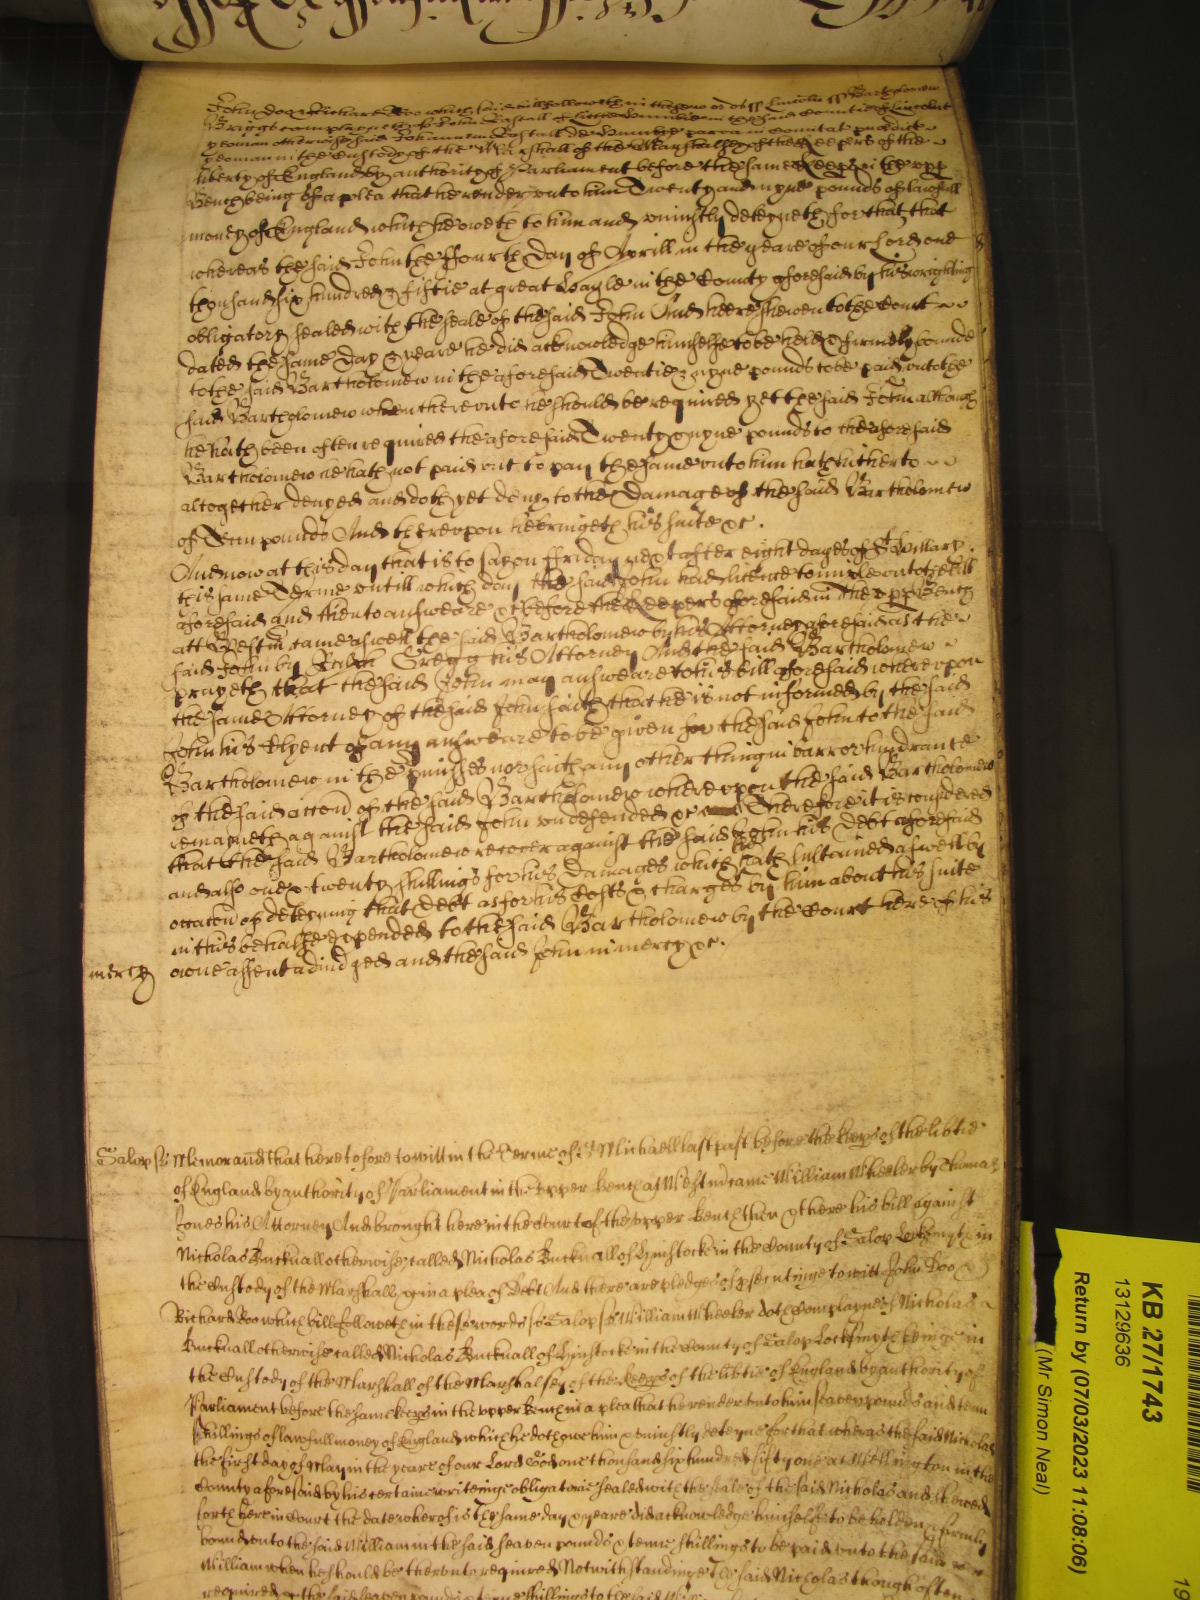 John Doo & Richard Roo which bill followeth in these words ss Lincoln ss Bartholomew
Briggs complayneth of John Rastall of little in the said Countie of Lincolne
yeoman otherwise said Johannem Rastall de parva in Comitat predict
yeoman in the Custody of the Marshall of the Marshalsey of the Keepers of the
liberty of England by authority of Parliament before the same Keepers in the upp
Bench being of a plea that he render unto him Twenty and nyne pounds of lawfull
money of England which he oweth to him and uniustly deteyneth for that that
whereas the said John the ffourth day of Aprill in the yeare of our Lord one
thousand six hundred & fiftie at great in the County aforesaid by his wrighting
obligatory sealed with the seale of the said John And heere shewen to the Court
dated the same day & yeare he did acknowledge himselfe to be held & firmely bounde
to the said Bartholomew in the aforesaid Twentie & nyne pounds to be paid unto the
said Bartholomew when thereunto he should be required yet the said John although
he hath been often required the aforesaid Twenty & nyne pounds to the aforesaid
Bartholomew he hath not paid but to pay the same unto him hath hitherto
altogether denyed and doth yet deny to the Damage of the said Bartholomew
of Tenn pounds And thereupon he bringeth his suite &c.
And now at this day that is to say on ffriday next after eight dayes of St Hillary
this same Terme untill which day the said John had licence to imple unto the bill
aforesaid and then to answeare &c before the Keepers aforesaid in the upp Bench
att Westm came aswell the said Bartholomew by his Attorney aforesaid as the
said John by Gregg his Attorney And the said Bartholomew
prayeth that the said John may answeare to his bill aforesaid whereupon
the same Attorney of the said John saith that he is not informed by the said
John his Clyent of any answeare to be given for the said John to the said
Bartholomew in the pmisses nor saith any other thing in barr or hindrance
of the said accon of the said Bartholomew whereupon the said Bartholomew
remayneth against the said John undefended &c Therefore it is considered
that the said Bartholomew recover against the said John his Debt aforesaid
and also one & twenty shillings for his Damages which he hath sustained aswell by
occacon of deteyning that Debt as for his Costs & charges by him about his suite
in this behalfe expended to the said Bartholomew by the Court here of his
mercy owne assent adiudged and the said John in mercy &c.
Salop ss Memorand that heretofore to witt in the Terme of St Michaell last past before the keeps of the libtie
of England by authority of Parliament in the upper bench at Westm came William Wheeler by Thomas
Jones his Attorney And brought here in the Court of the upper bench then & there his bill against
Nicholas Bucknall otherwise called Nicholas Bucknall of in the County of Salop Locksmyth in
the Custody of the Marshall &c in a plea of Debt And there are pledges of psecutinge to witt John Doo &
Richard Roo which bill followeth in these words ss Salop ss William Wheeler doth Complayne of Nicholas
Bucknall otherwise called Nicholas Bucknall of in the County of Salop Locksmyth beinge in
the Custody of the Marshall of the Marshalsey of the keeps of the libtie of England by authority of
Parliament before the same keeps in the upper bench in a plea that he render unto him seaven pounds and tenn
shillings of lawfull money of England which he doth owe him & uniustly deteyne for that wheras the said Nicholas
the first day of May in the yeare of our Lord God one thousand six hundred fifty one at Wellington in the
County aforesaid by his certaine writeinge obligatorie sealed with the seale of the said Nicholas and shewed
forth here in Court the date wherof is the same day & yeare did acknowledge himselfe to be holden & firmly
bound unto the said William in the said seaven pounds & tenne shillings to be paid unto the said
William when he should be therunto required Notwithstandinge the said Nicholas though often
required the said seaven pounds & tenne shillings to the said
KB 27/1743
13129636
Return by (07/03/2023 11:08:06)
(Mr Simon Neal)